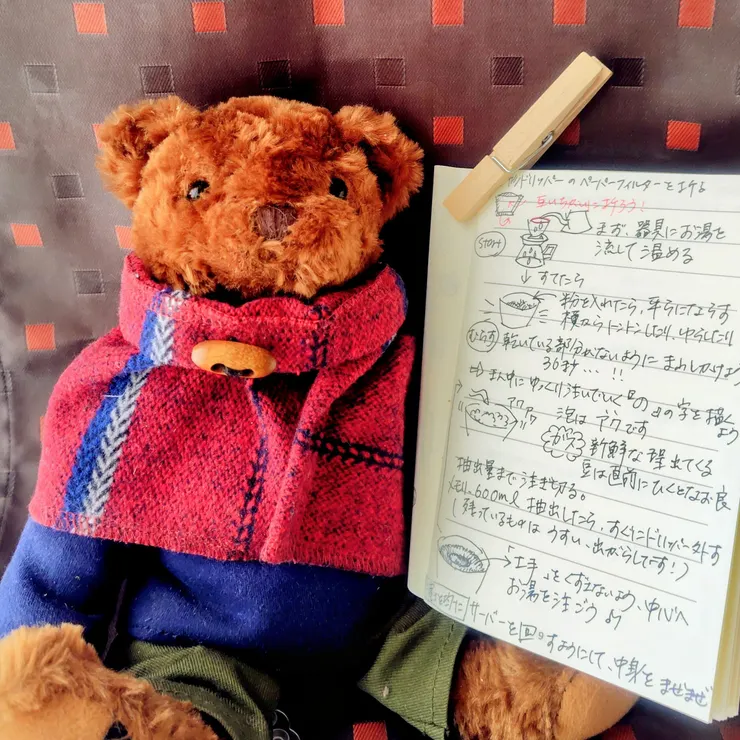 ドリッパーのペーパーフィルターを折る
START
まず、器具にお湯を
流して温める
すてたら
粉を入れたら、平らにならす
横からトントンしたり、ゆらしたり
むらす
乾いている部分がないように まんべんなく
30秒...!!
まん中に ゆっくり注いでいく「の」の字を描くよう
アワアワ
泡は アクです
ガス
新鮮な程出てくる
豆は直前にひくとなお良
抽出量まで注ぎ切る。
600ml 抽出したら、すぐにドリッパー外す
(残っているものは うすい、出がらしです!)
「土手」をくずさないよう、中心へ
お湯を注ごう♪
サーバーを回すようにして、中身を まぜまぜ